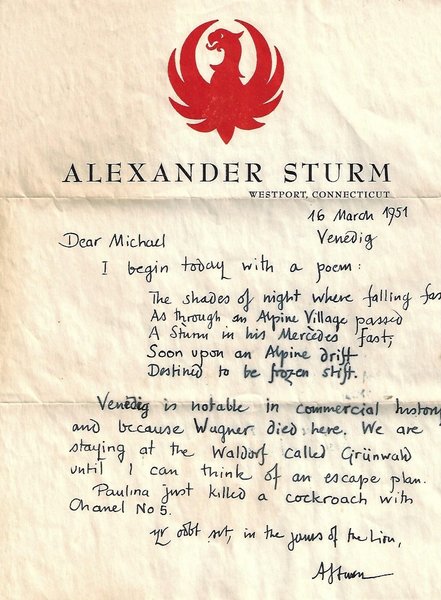 ALEXANDER STURM
WESTPORT, CONNECTICUT
16 March 1951
Venedig
Dear Michael
I begin today with a poem:
The shades of night where falling fas
As through an Alpine Village passed
A Sturm in his Mercèdes fast,
Soon upon an Alpine drift
Destined to be frozen stift.
Venedig is notable in commercial history
and because Wagner died here. We are
staying at the Waldorf called Grünwald
until I can think of an escape plan.
Paulina just killed a cockroach with
Chanel No 5.
yr obdt svt, in the jaws of the Lion,
ASturm